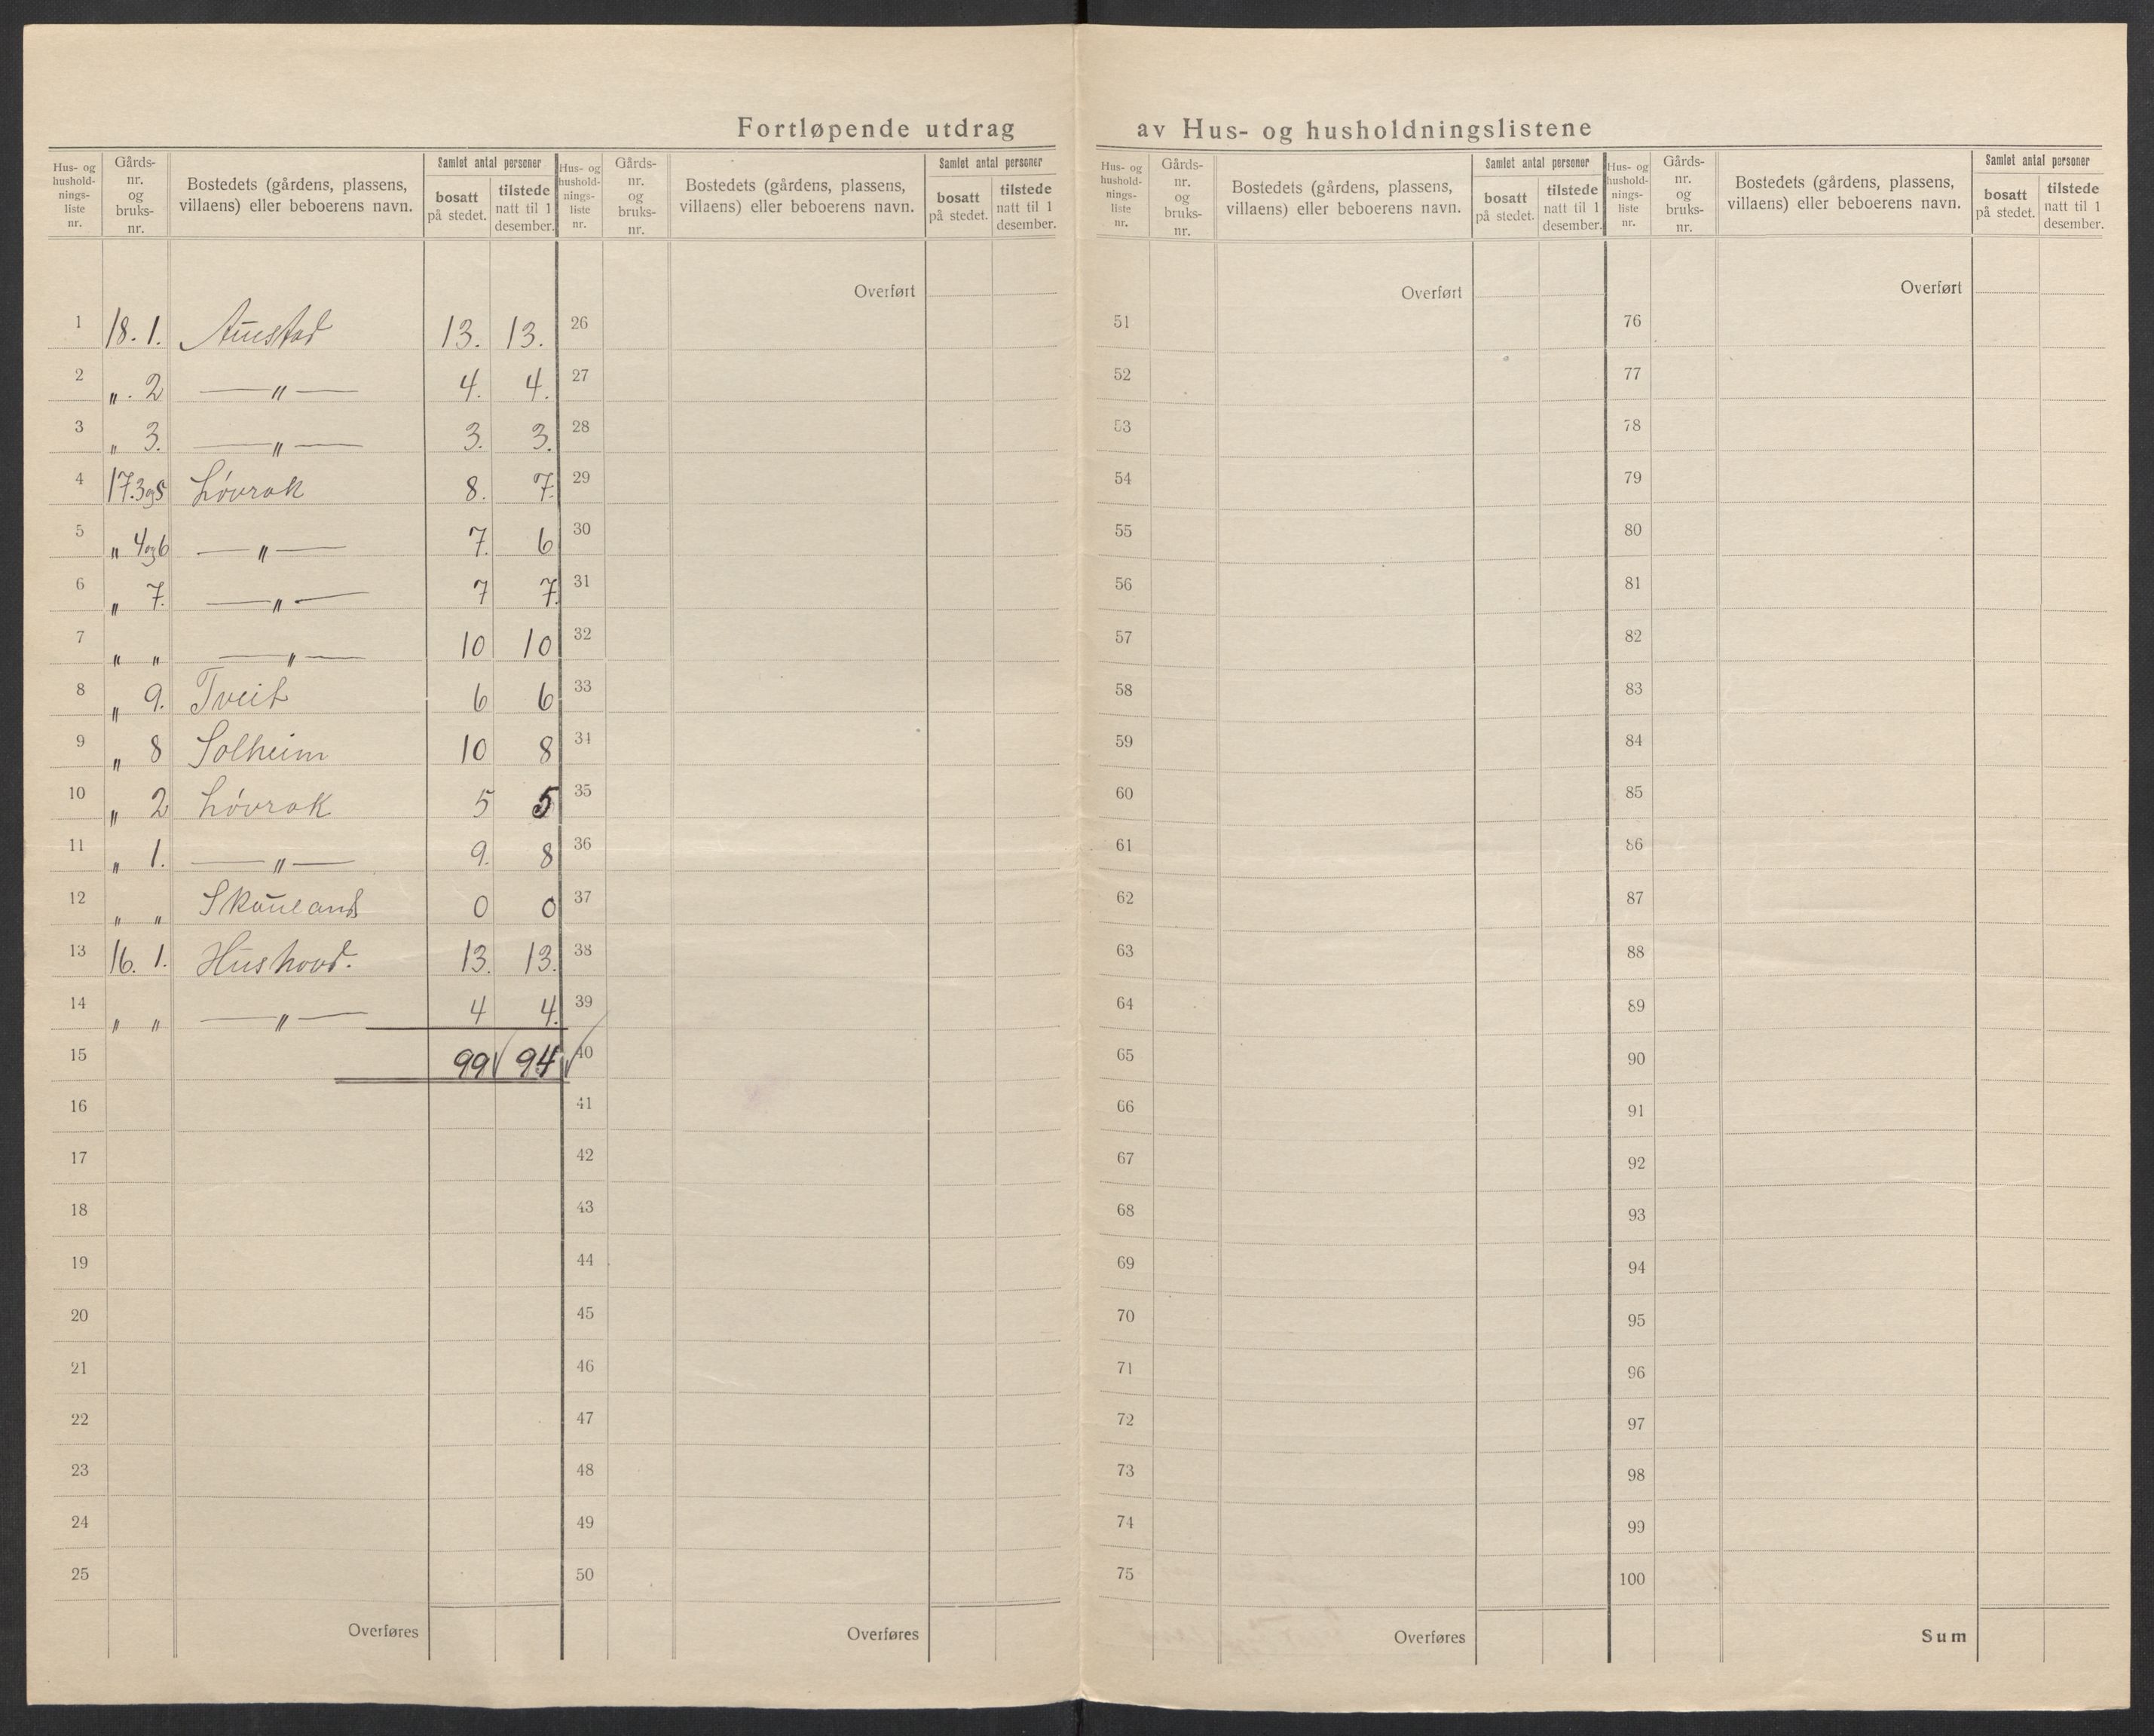 Fortløpende utdrag av Hus- og husholdningslistene
Hus- og hushold-nings-liste nr. | Gårds-nr. og bruks-nr. | Bostedets (gårdens, plassens, villaens) eller beboerens navn. | Samlet antal personer bosatt på stedet. | tilstede natt til 1 desember.
1 18. 1. Austad 13. 13.
2 „ . 2 —„— 4. 4.
3 „ 3. —„— 3. 3.
4 17. 3 og 5 Løvrak 8. 7.
5 „ 4 og 6 —„— 7. 6
6 „ 7. —„— 7 7.
7 „ „ —„— 10 10
8 „ 9. Tveit 6 6
9 „ 8 Solheim 10 8
10 „ 2 Løvrak 5 5
11 „ 1. —„— 9. 8
12 „ „ Skauland 0 0
13 16. 1. Hushovd. 13. 13.
14 „ „ —„— 4 4.
15 99 √ 94 √
16
17
18
19
20
21
22
23
24
25
Overføres
Hus- og hushold-nings-liste nr. | Gårds-nr. og bruks-nr. | Bostedets (gårdens, plassens, villaens) eller beboerens navn. | Samlet antal personer bosatt på stedet. | tilstede natt til 1 desember.
Overført
26
27
28
29
30
31
32
33
34
35
36
37
38
39
40
41
42
43
44
45
46
47
48
49
50
Overføres
Hus- og hushold-nings-liste nr. | Gårds-nr. og bruks-nr. | Bostedets (gårdens, plassens, villaens) eller beboerens navn. | Samlet antal personer bosatt på stedet. | tilstede natt til 1 desember.
Overført
51
52
53
54
55
56
57
58
59
60
61
62
63
64
65
66
67
68
69
70
71
72
73
74
75
Overføres
Hus- og hushold-nings-liste nr. | Gårds-nr. og bruks-nr. | Bostedets (gårdens, plassens, villaens) eller beboerens navn. | Samlet antal personer bosatt på stedet. | tilstede natt til 1 desember.
Overført
76
77
78
79
80
81
82
83
84
85
86
87
88
89
90
91
92
93
94
95
96
97
98
99
100
Sum